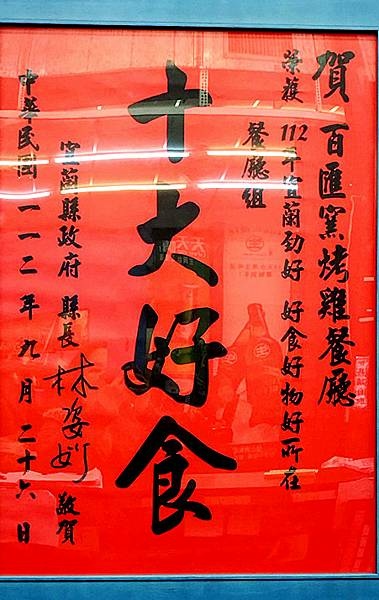 賀 百匯窯烤雞餐廳
榮獲 112年宜蘭勁好 好食好物好所在
餐廳組
十大好食
宜蘭縣政府 縣長 林姿妙 敬賀
中華民國一一二年九月二十六日